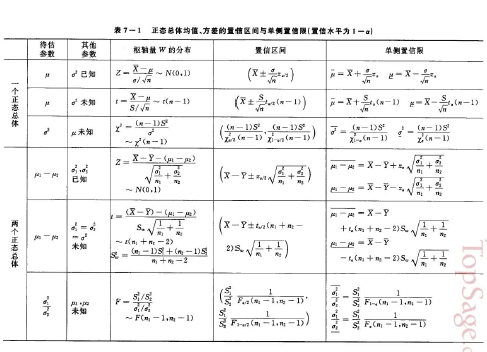 表 7-1 正态总体均值、方差的置信区间与单侧置信限(置信水平为 1-α)
待估参数 其他参数 枢轴量 W 的分布 置信区间 单侧置信限
一个正态总体
μ σ² 已知 Z = (X̄-μ)/(σ/√n) ~ N(0,1) (X̄ ± σ/√n z_{α/2}) μ̄ = X̄ + σ/√n z_α μ̲ = X̄ - σ/√n z_α
μ σ² 未知 t = (X̄-μ)/(S/√n) ~ t(n-1) (X̄ ± S/√n t_{α/2}(n-1)) μ̄ = X̄ + S/√n t_α(n-1) μ̲ = X̄ - S/√n t_α(n-1)
σ² μ 未知 χ² = (n-1)S²/σ² ~ χ²(n-1) ((n-1)S²/χ²_{α/2}(n-1), (n-1)S²/χ²_{1-α/2}(n-1)) σ̄² = (n-1)S²/χ²_{1-α}(n-1) σ̲² = (n-1)S²/χ²_α(n-1)
两个正态总体
μ₁-μ₂ σ₁²,σ₂² 已知 Z = (X̄-Ȳ-(μ₁-μ₂))/√(σ₁²/n₁+σ₂²/n₂) ~ N(0,1) (X̄-Ȳ ± z_{α/2}√(σ₁²/n₁+σ₂²/n₂)) μ₁-μ₂ = X̄-Ȳ + z_α√(σ₁²/n₁+σ₂²/n₂)
μ₁-μ₂ = X̄-Ȳ - z_α√(σ₁²/n₁+σ₂²/n₂)
μ₁-μ₂ σ₁² = σ₂² = σ² 未知 t = ((X̄-Ȳ)-(μ₁-μ₂))/(S_w√(1/n₁+1/n₂)) ~ t(n₁+n₂-2) (X̄-Ȳ ± t_{α/2}(n₁+n₂-2)S_w√(1/n₁+1/n₂)) μ₁-μ₂ = X̄-Ȳ + t_α(n₁+n₂-2)S_w√(1/n₁+1/n₂)
S_w² = ((n₁-1)S₁²+(n₂-1)S₂²)/(n₁+n₂-2) μ₁-μ₂ = X̄-Ȳ - t_α(n₁+n₂-2)S_w√(1/n₁+1/n₂)
σ₁²/σ₂² μ₁,μ₂ 未知 F = (S₁²/S₂²)/(σ₁²/σ₂²) ~ F(n₁-1,n₂-1) (S₁²/S₂² 1/F_{α/2}(n₁-1,n₂-1), S₁²/S₂² 1/F_{1-α/2}(n₁-1,n₂-1)) σ₁²/σ₂² = S₁²/S₂² 1/F_{1-α}(n₁-1,n₂-1)
σ₁²/σ₂² = S₁²/S₂² 1/F_α(n₁-1,n₂-1)
TopSage.c